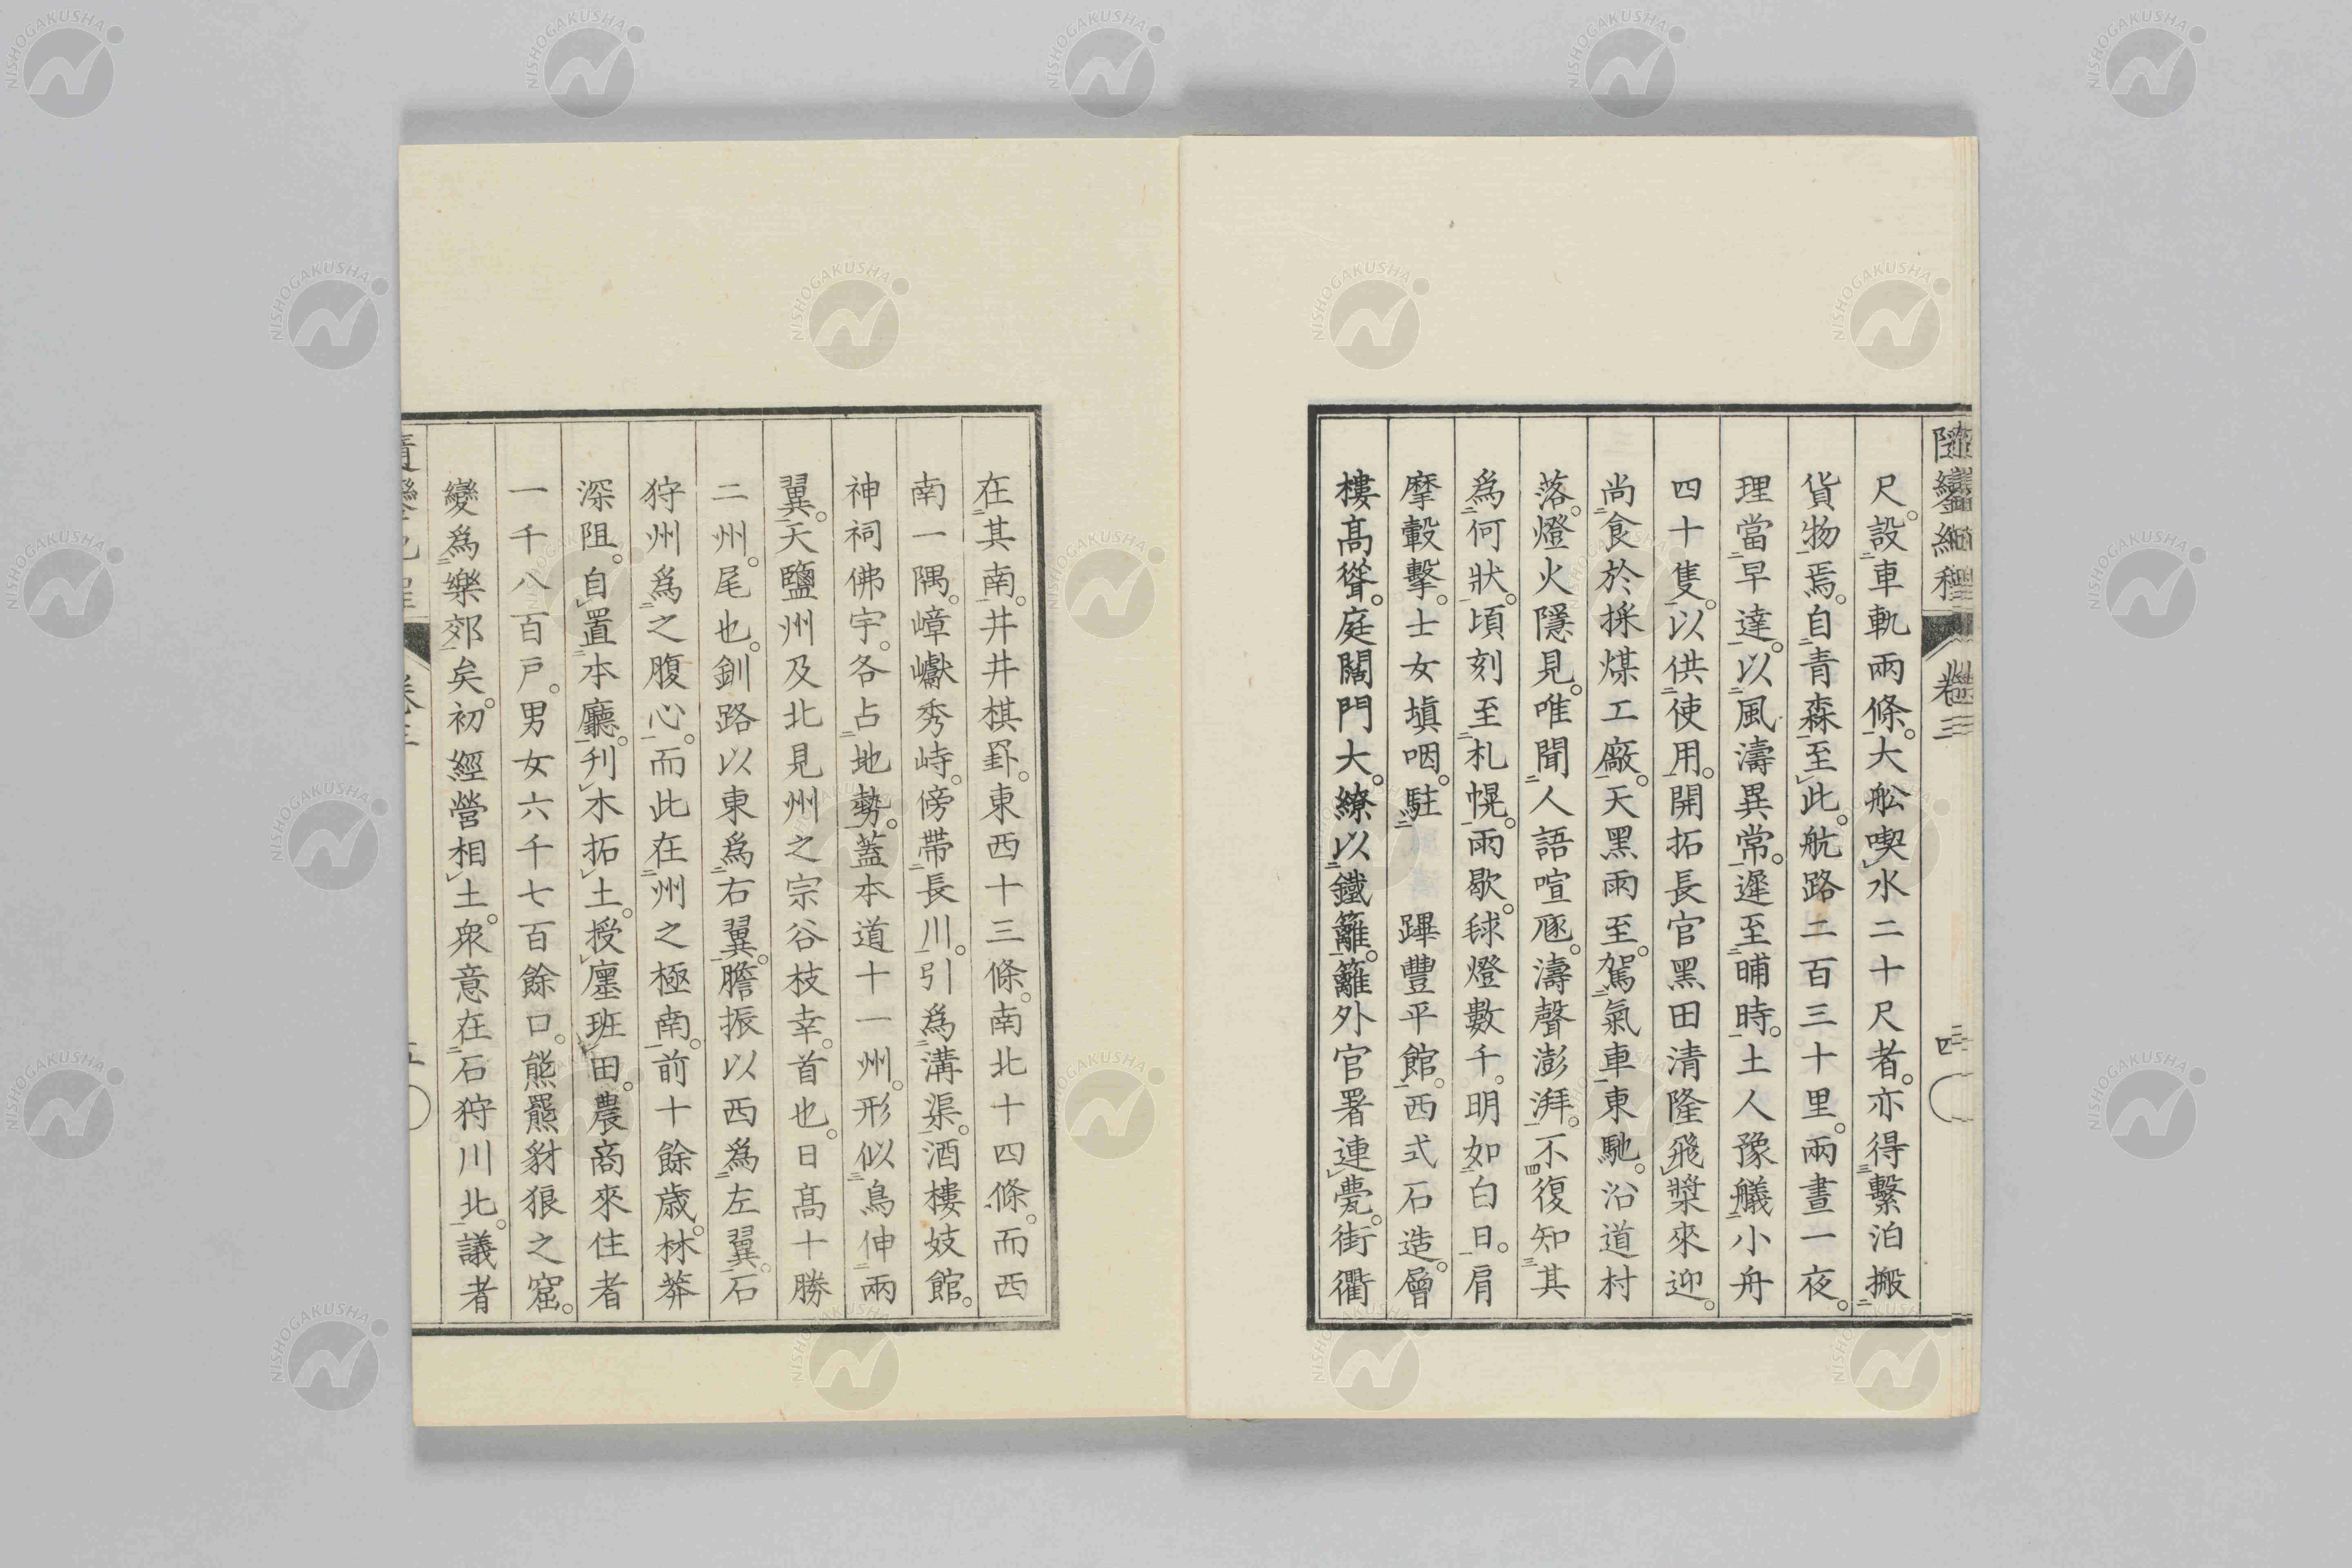 隨鑾紀程 卷三 四
尺。設車軌兩條。大舩喫水二十尺者。亦得繫泊搬
貨物焉。自青森至此。航路二百三十里。兩晝一夜。
理當早達。以風濤異常。遲至晡時。土人豫艤小舟
四十隻。以供使用。開拓長官黑田清隆飛槳來迎。
尚食於採煤工廠。天黑雨至。駕氣車東馳。沿道村
落。燈火隱見。唯聞人語喧豗。濤聲澎湃。不復知其
爲何狀。頃刻至札幌。雨歇。毬燈數千。明如白日。肩
摩轂擊。士女塡咽。駐 蹕豐平館。西式石造。層
樓高聳。庭闊門大。繚以鐵籬。籬外官署連甍。街衢
在其南。井井棋罫。東西十三條。南北十四條。而西
南一隅。嶂巘秀峙。傍帶長川。引爲溝渠。酒樓妓館。
神祠佛宇。各占地勢。蓋本道十一州。形似鳥伸兩
翼。天鹽州及北見州之宗谷枝幸。首也。日高十勝
二州。尾也。釧路以東爲右翼。膽振以西爲左翼。石
狩州爲之腹心。而此在州之極南。前十餘歲。林莽
深阻。自置本廳。刋木拓土。授廛班田。農商來住者
一千八百戸。男女六千七百餘口。熊羆豺狼之窟。
變爲樂郊矣。初經營相土。衆意在石狩川北。議者